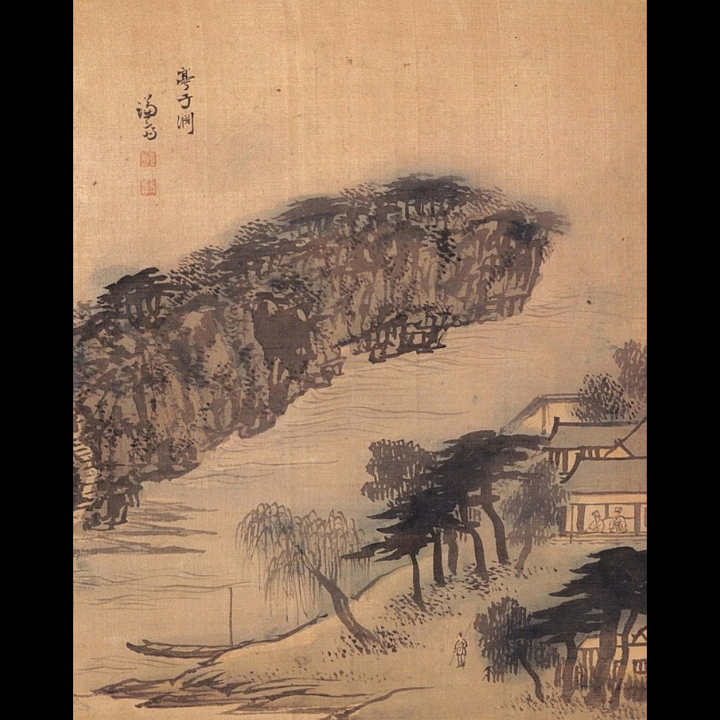 亭子淵
謙齋